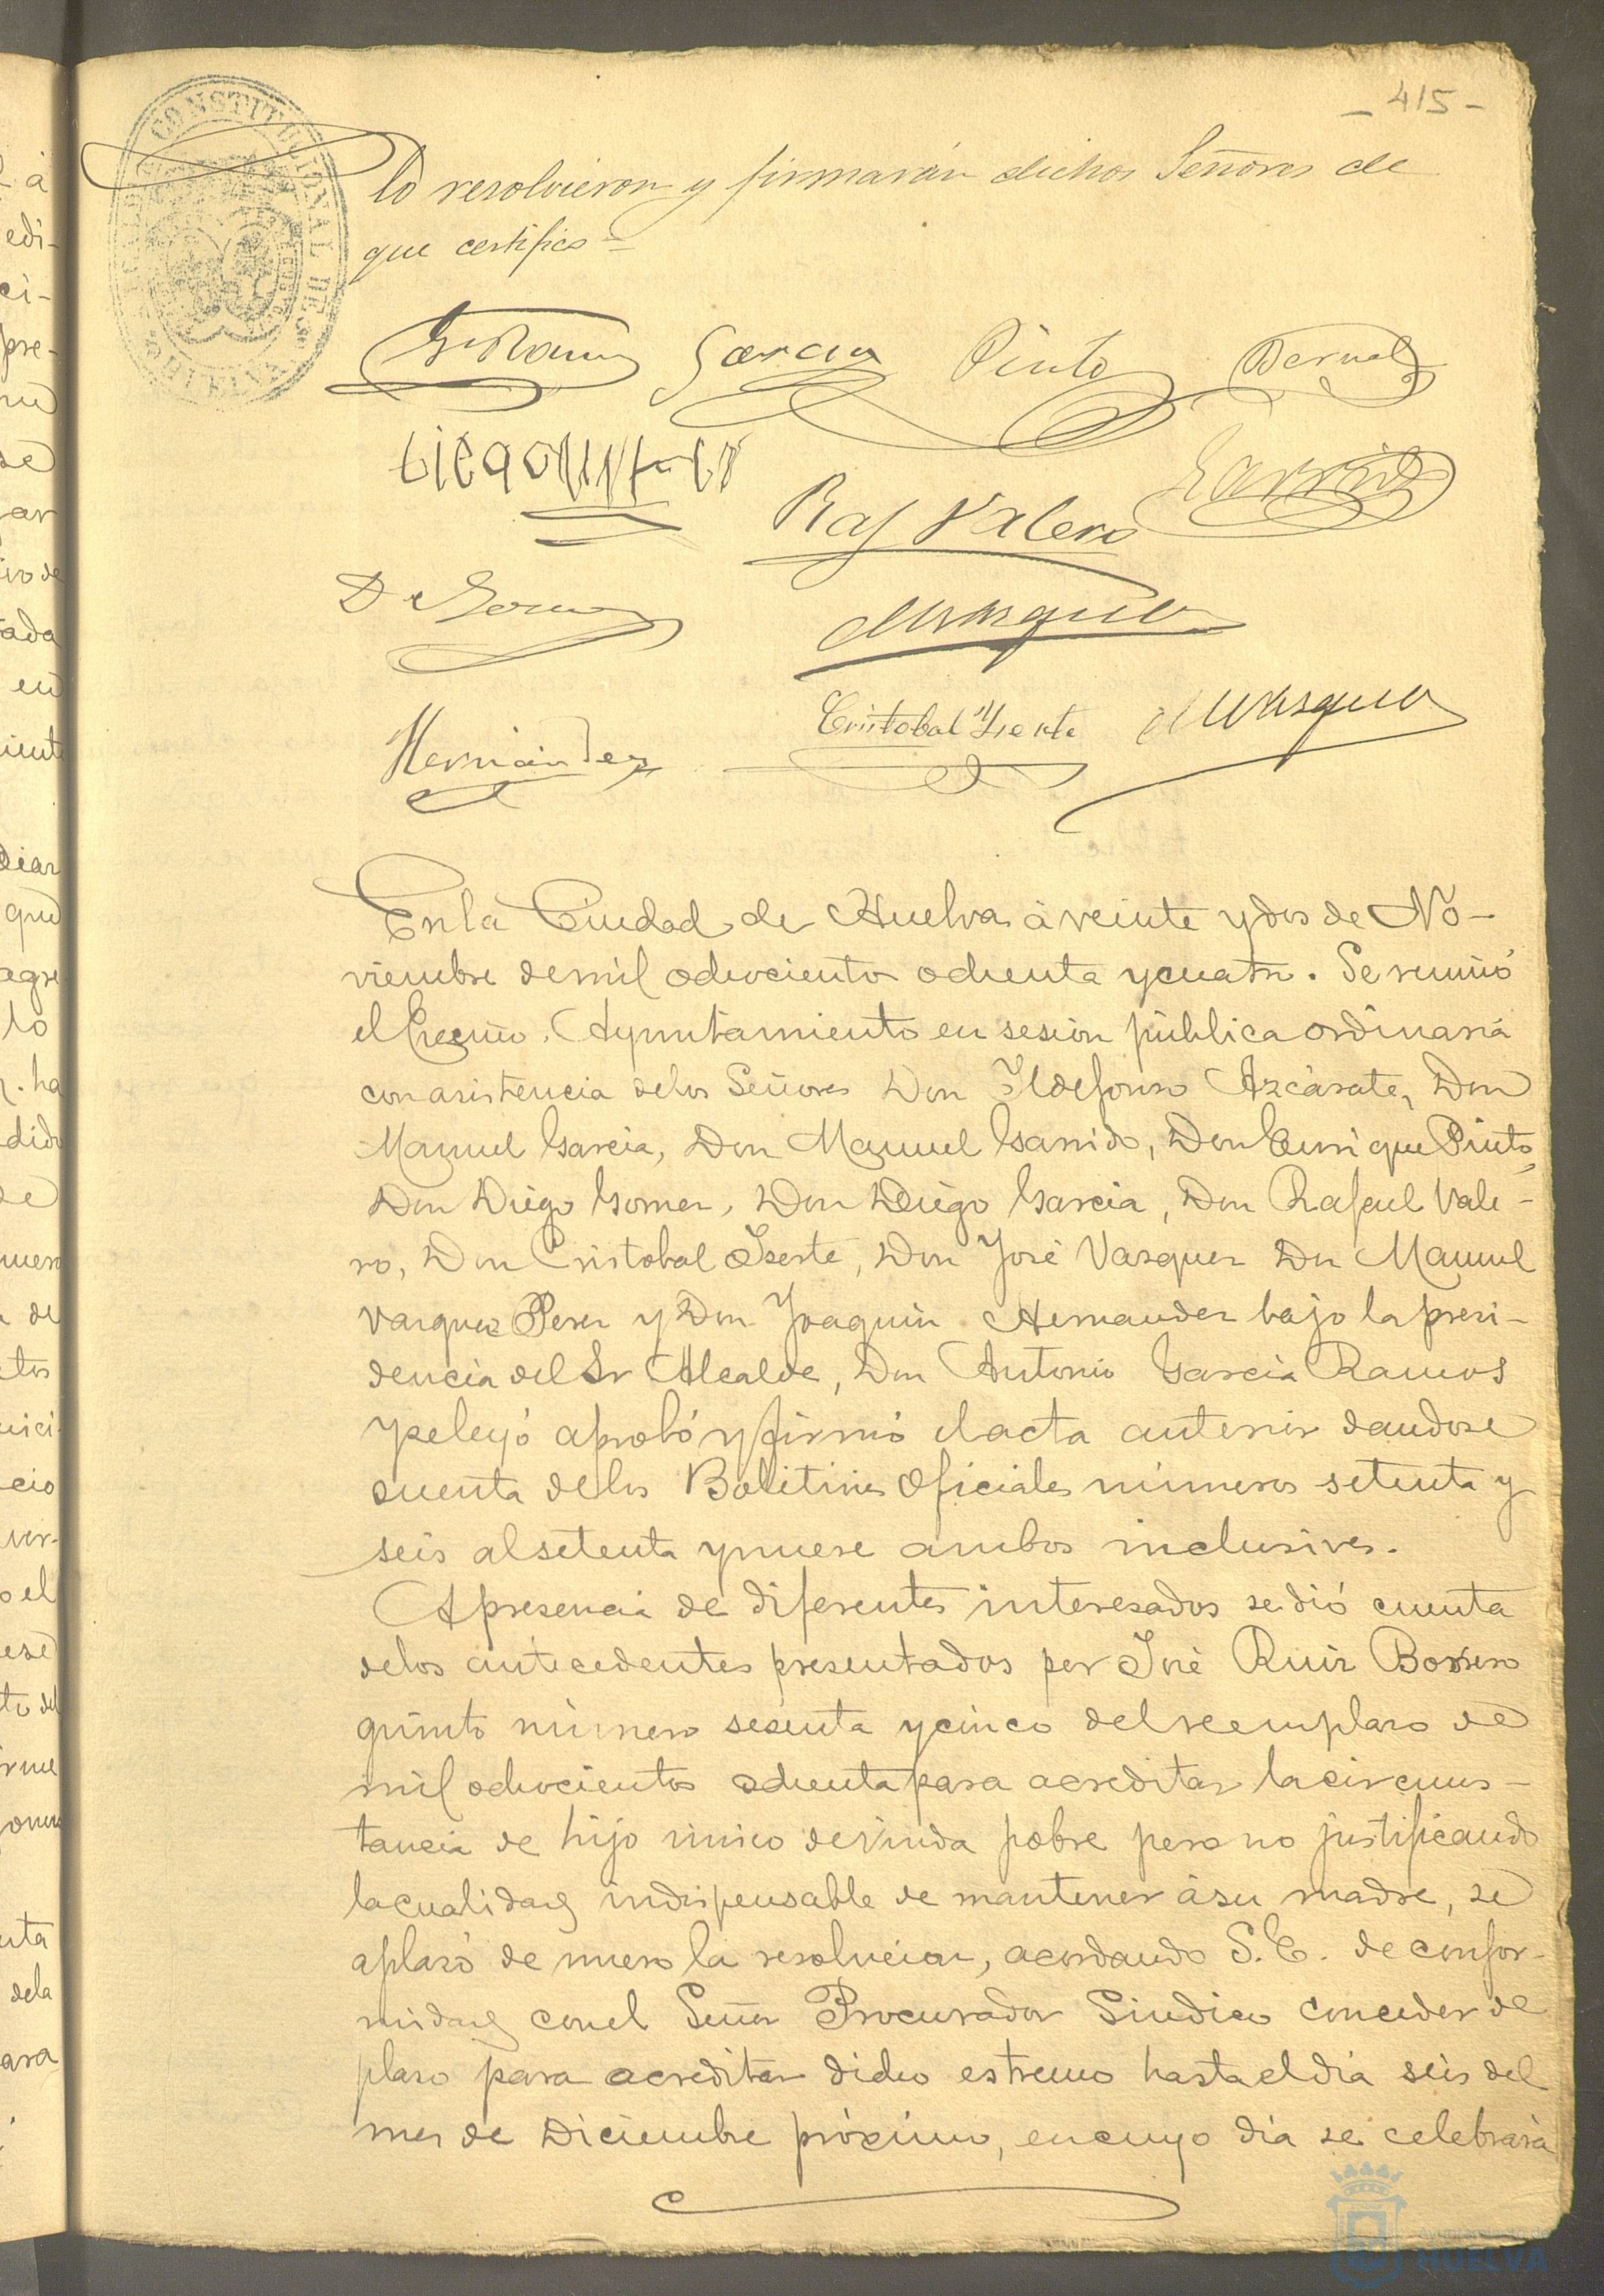 - 415 -
lo resolvieron y firmarán dichos Señores de
que certifico =
Garcia Pinto Bernal
Garrido
Raf Valero
D Gomez
MVasquez
Hernández Cristobal Yserte MVasquez
En la Ciudad de Huelva á veinte y dos de No-
viembre de mil ochocientos ochenta y cuatro. Se reunió
el Excmo. Ayuntamiento en sesión pública ordinaria
con asistencia de los Señores Don Ildefonso Azcárate, Don
Manuel Garcia, Don Manuel Garrido, Don Enrique Pinto,
Don Diego Gomez, Don Diego Garcia, Don Rafael Vale-
ro, Don Cristobal Yserte, Don José Vazquez Dn Manuel
Vazquez Perez y Don Joaquin Hernandez bajo la presi-
dencia del Sr Alcalde, Don Antonio Garcia Ramos
y se leyó aprobó y firmó el acta anterior dandose
cuenta de los Boletines Oficiales números setenta y
seis al setenta y nueve ambos inclusives.
A presencia de diferentes interesados se dió cuenta
de los antecedentes presentados por José Ruiz Borrero
quinto número sesenta y cinco del reemplazo de
mil ochocientos ochenta para acreditar la circuns-
tancia de hijo único de viuda pobre pero no justificando
la cualidad indispensable de mantener á su madre, se
aplazó de nuevo la resolucion, acordando S.E. de confor-
midad con el Señor Procurador Sindico conceder de
plazo para acreditar dicho estremo hasta el dia seis del
mes de Diciembre próximo, en cuyo dia se celebrará
HUELVA